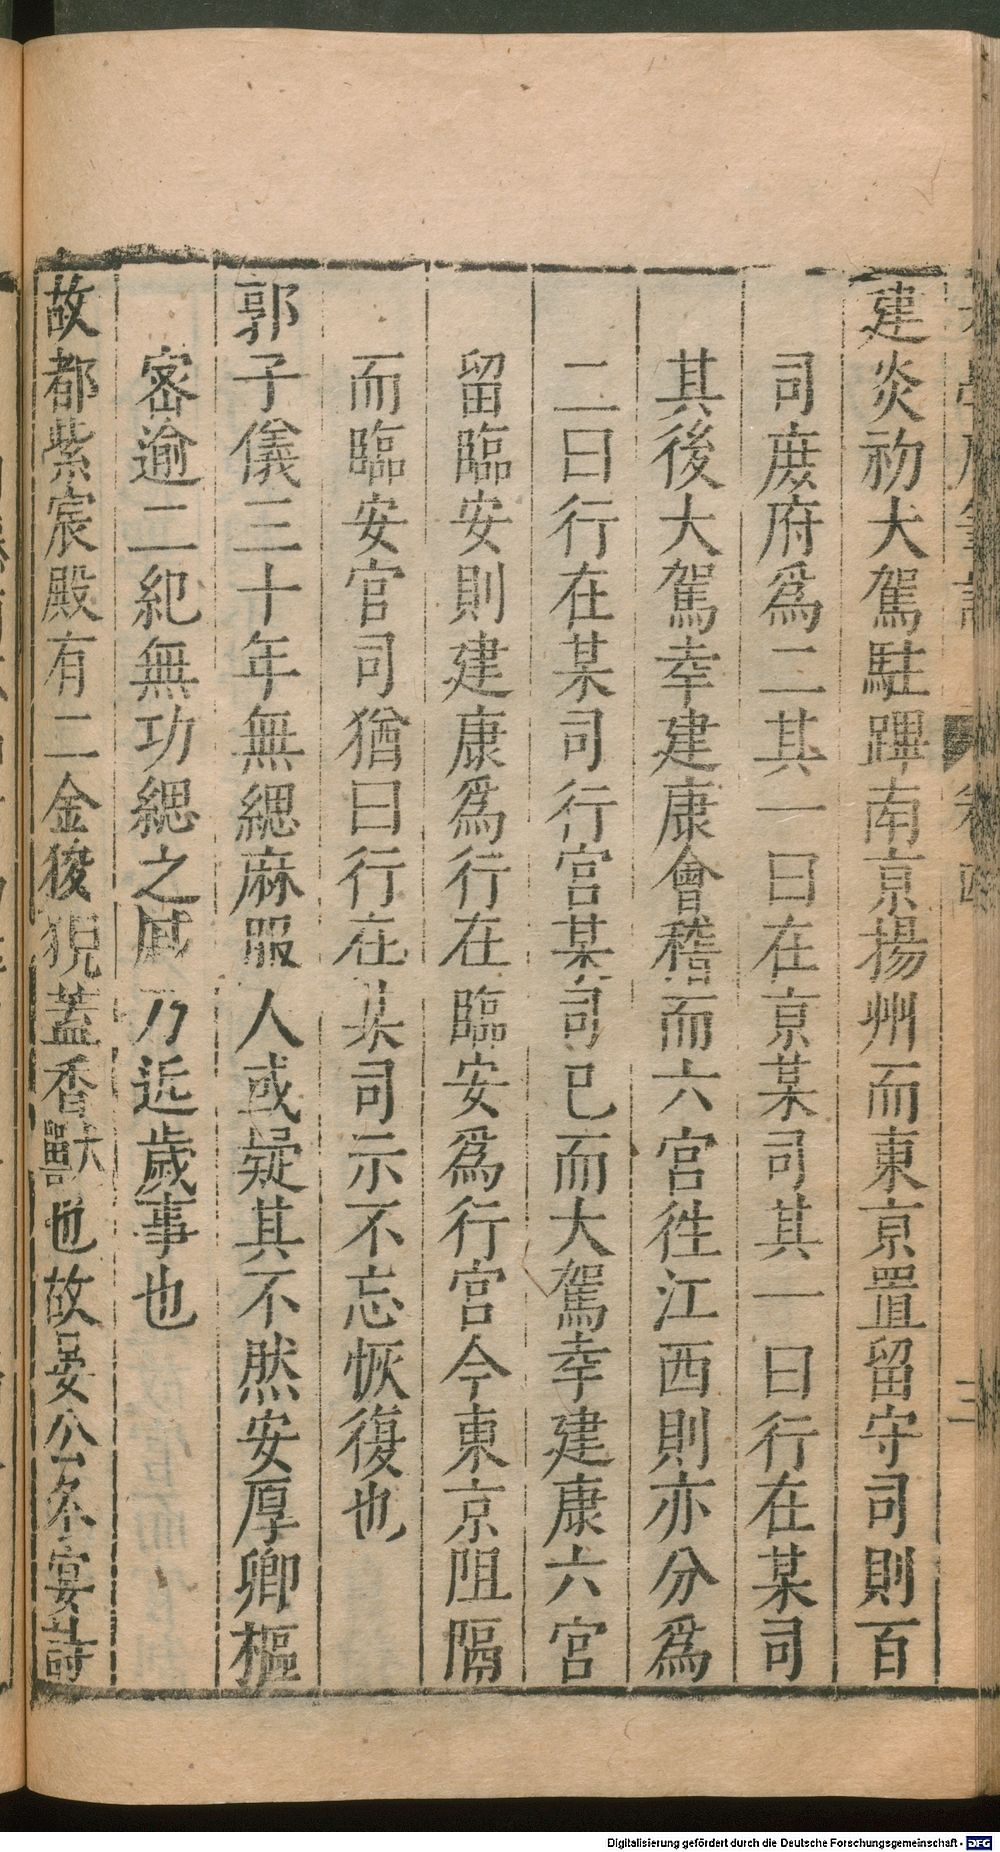 建炎初大駕駐蹕南京揚州而東京置留守司則百
司庻府爲二其一曰在京某司其一曰行在某司
其後大駕幸建康會稽而六宮徃江西則亦分爲
二曰行在某司行宮某司已而大駕幸建康六宮
留臨安則建康爲行在臨安爲行宮今東京阻隔
而臨安官司猶曰行在某司示不忘恢復也
郭子儀三十年無緦麻服人或疑其不然安厚卿樞
密逾二紀無功緦之戚乃近歲事也
故都紫宸殿有二金狻猊蓋香獸也故晏公冬宴詩
Digitalisierung gefördert durch die Deutsche Forschungsgemeinschaft - DFG